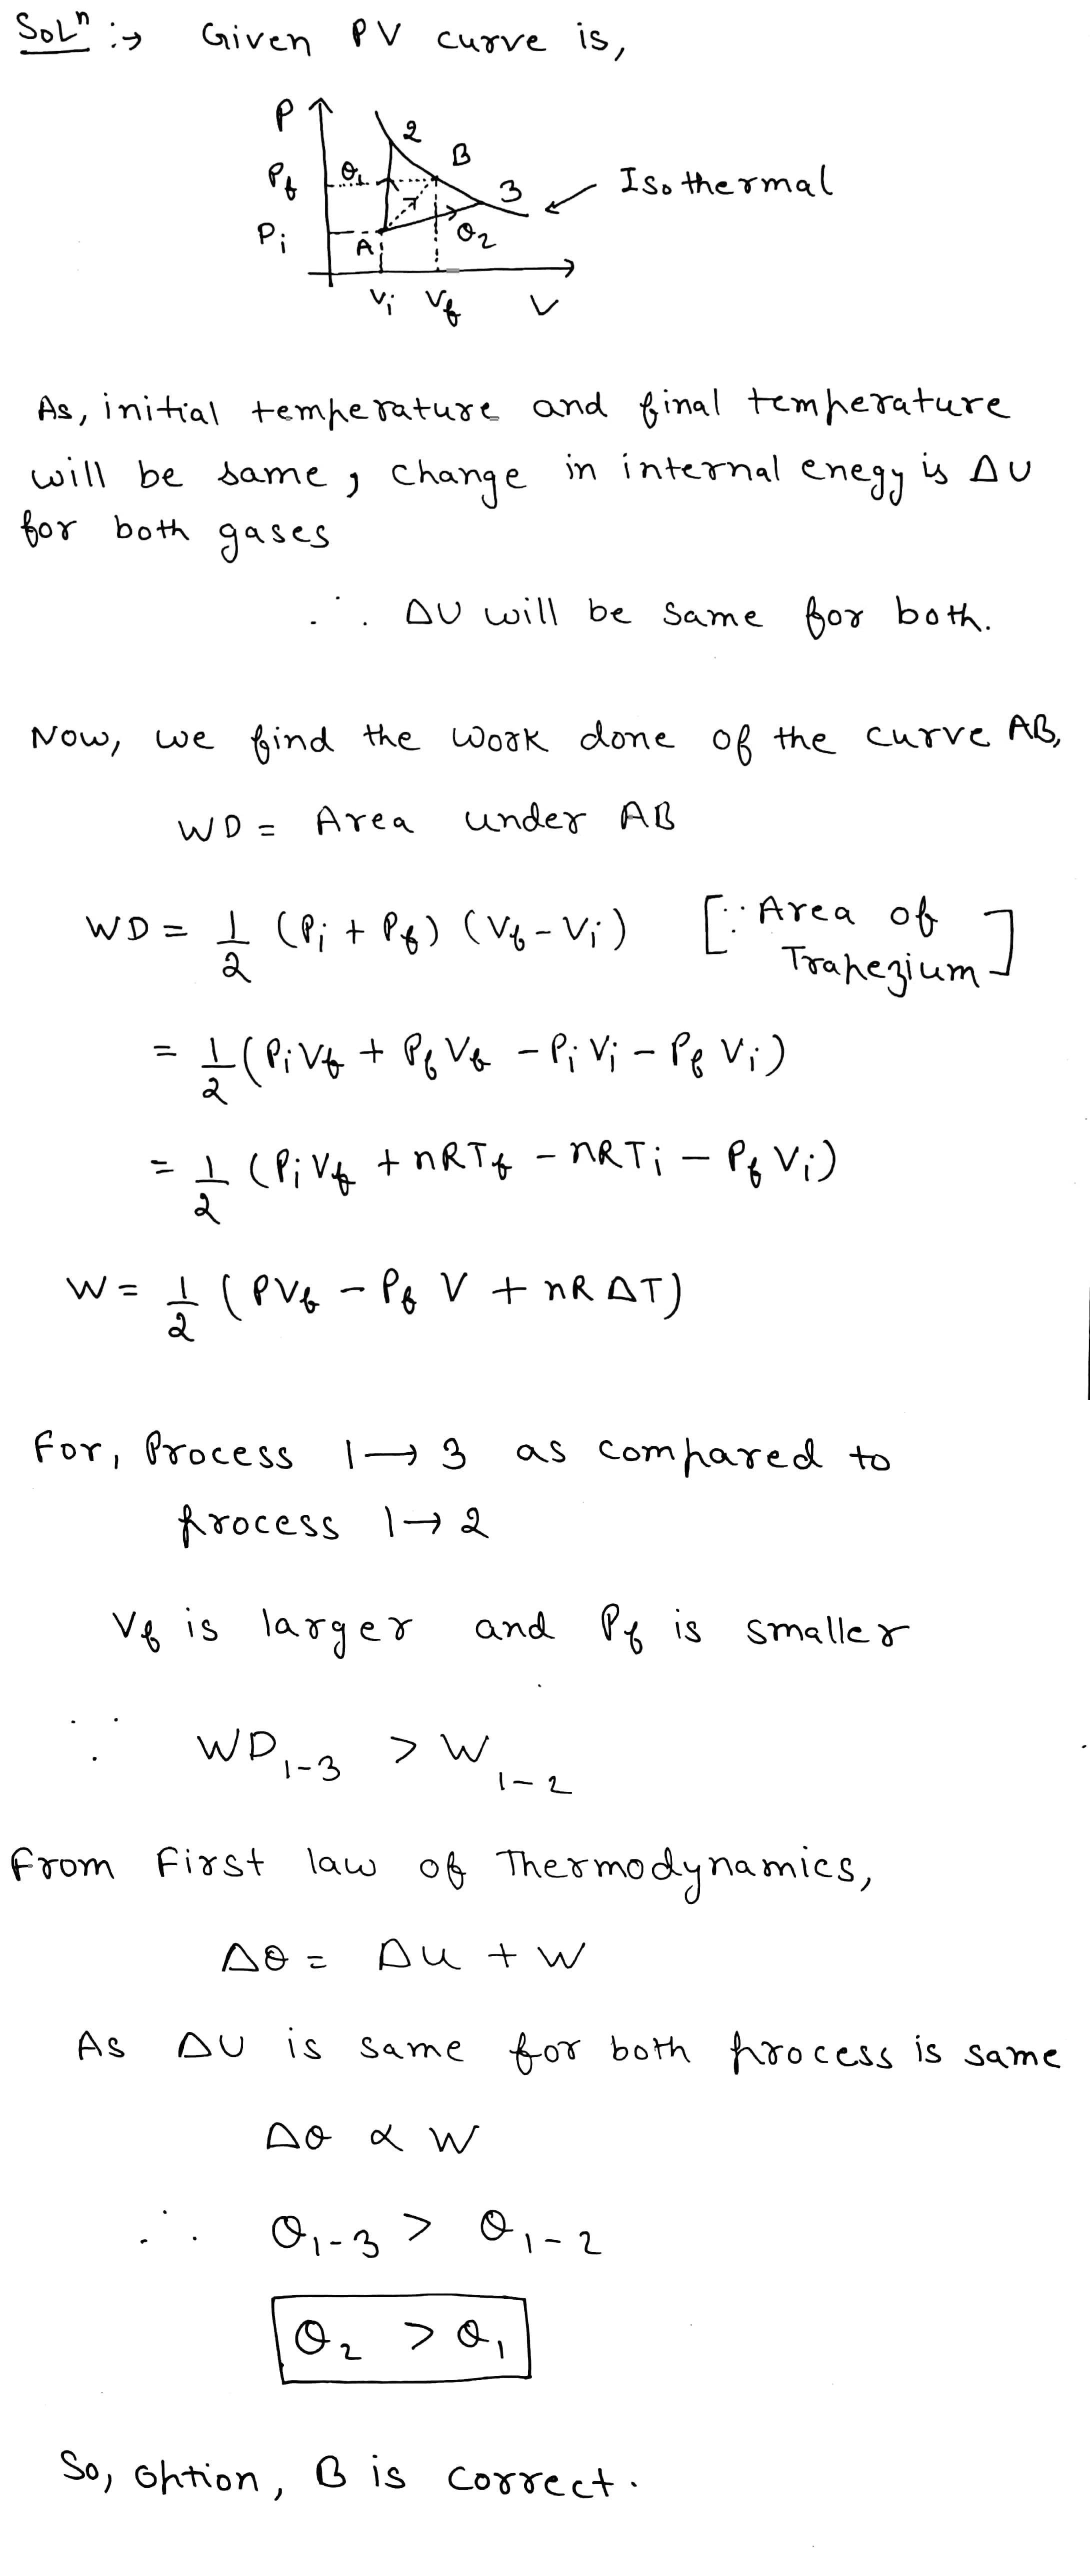 Solⁿ :→ Given PV curve is,
P
2
B
Pf
Q1
3
Isothermal
Pi
A
Q2
Vi Vf V
As, initial temperature and final temperature
will be same, change in internal enegy is ΔU
for both gases
∴ ΔU will be same for both.
Now, we find the work done of the curve AB,
WD = Area under AB
WD = 1/2 (Pi + Pf) (Vf - Vi) [∵ Area of Trapezium]
= 1/2 (PiVf + PfVf - PiVi - PfVi)
= 1/2 (PiVf + nRTf - nRTi - PfVi)
W = 1/2 (PVf - PfV + nRΔT)
For, Process 1→3 as compared to
process 1→2
Vf is larger and Pf is smaller
∵ WD1-3 > W1-2
From First law of Thermodynamics,
ΔQ = Δu + W
As ΔU is same for both process is same
ΔQ ∝ W
∴ Q1-3 > Q1-2
Q2 > Q1
So, option, B is correct.